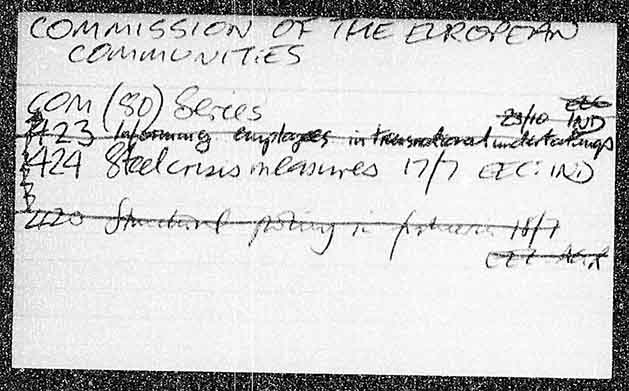 COMMISSION OF THE EUROPEAN
COMMUNITIES
COM (80) Series
23/10 EEC IND
423 Informing employees in transnational undertakings
424 Steel crisis measures 17/7 EEC: IND
420 Structural policy in fisheries 18/7
EEC